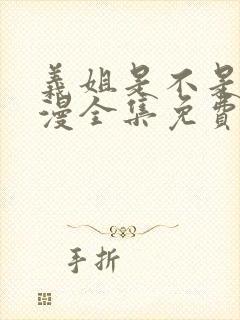 義姐是不是
漫全集免費
手折